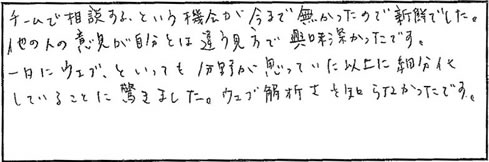 チームで相談する、という機会が今まで無かったので新鮮でした。
他の人の意見が自分とは違う見方で興味深かったです。
一口にウェブ、といっても分野が思っていた以上に細分化
していることに驚きました。ウェブ解析士を知らなかったです。